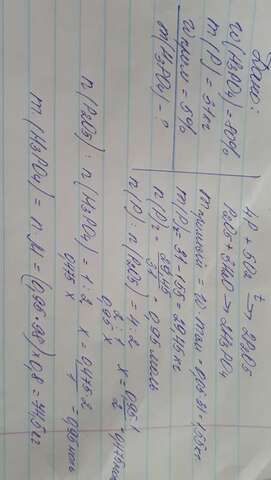 Дано:
w(H3PO4) = 80%
m(P) = 31 кг
w прим = 5%
m(H3PO4) - ?
4P + 5O2 t→ 2P2O5
P2O5 + 3H2O → 2H3PO4
m примесей = w · m = 0,05 · 31 = 1,55 кг
m(P) = 31 - 1,55 = 29,45 кг
n(P) = 29,45 / 31 = 0,95 моль
n(P) : n(P2O5) = 4 : 2
2 : 1
0,95 x
x = 0,95 · 1 / 2 = 0,475 моль
n(P2O5) : n(H3PO4) = 1 : 2
0,475 x
x = 0,475 · 2 / 1 = 0,95 моль
m(H3PO4) = n · M = (0,95 · 98) × 0,8 = 74,5 кг